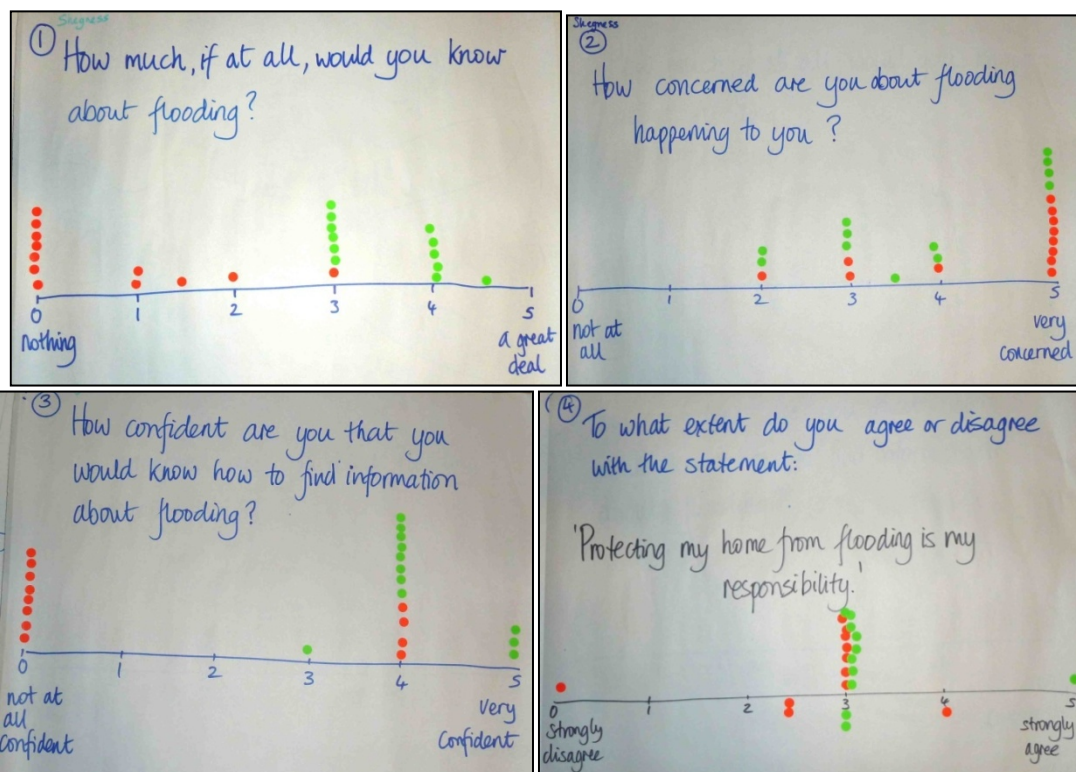 Skegness
1 How much, if at all, would you know
about flooding?
0 1 2 3 4 5
nothing
a great
deal
Skegness
2
How concerned are you about flooding
happening to you?
0 1 2 3 4 5
not at
all
very
concerned
3 How confident are you that you
would know how to find information
about flooding?
0 1 2 3 4 5
not at
all
confident
very
confident
4 To what extent do you agree or disagree
with the statement:
'Protecting my home from flooding is my
responsibility.'
0 1 2 3 4 5
strongly
disagree
strongly
agree